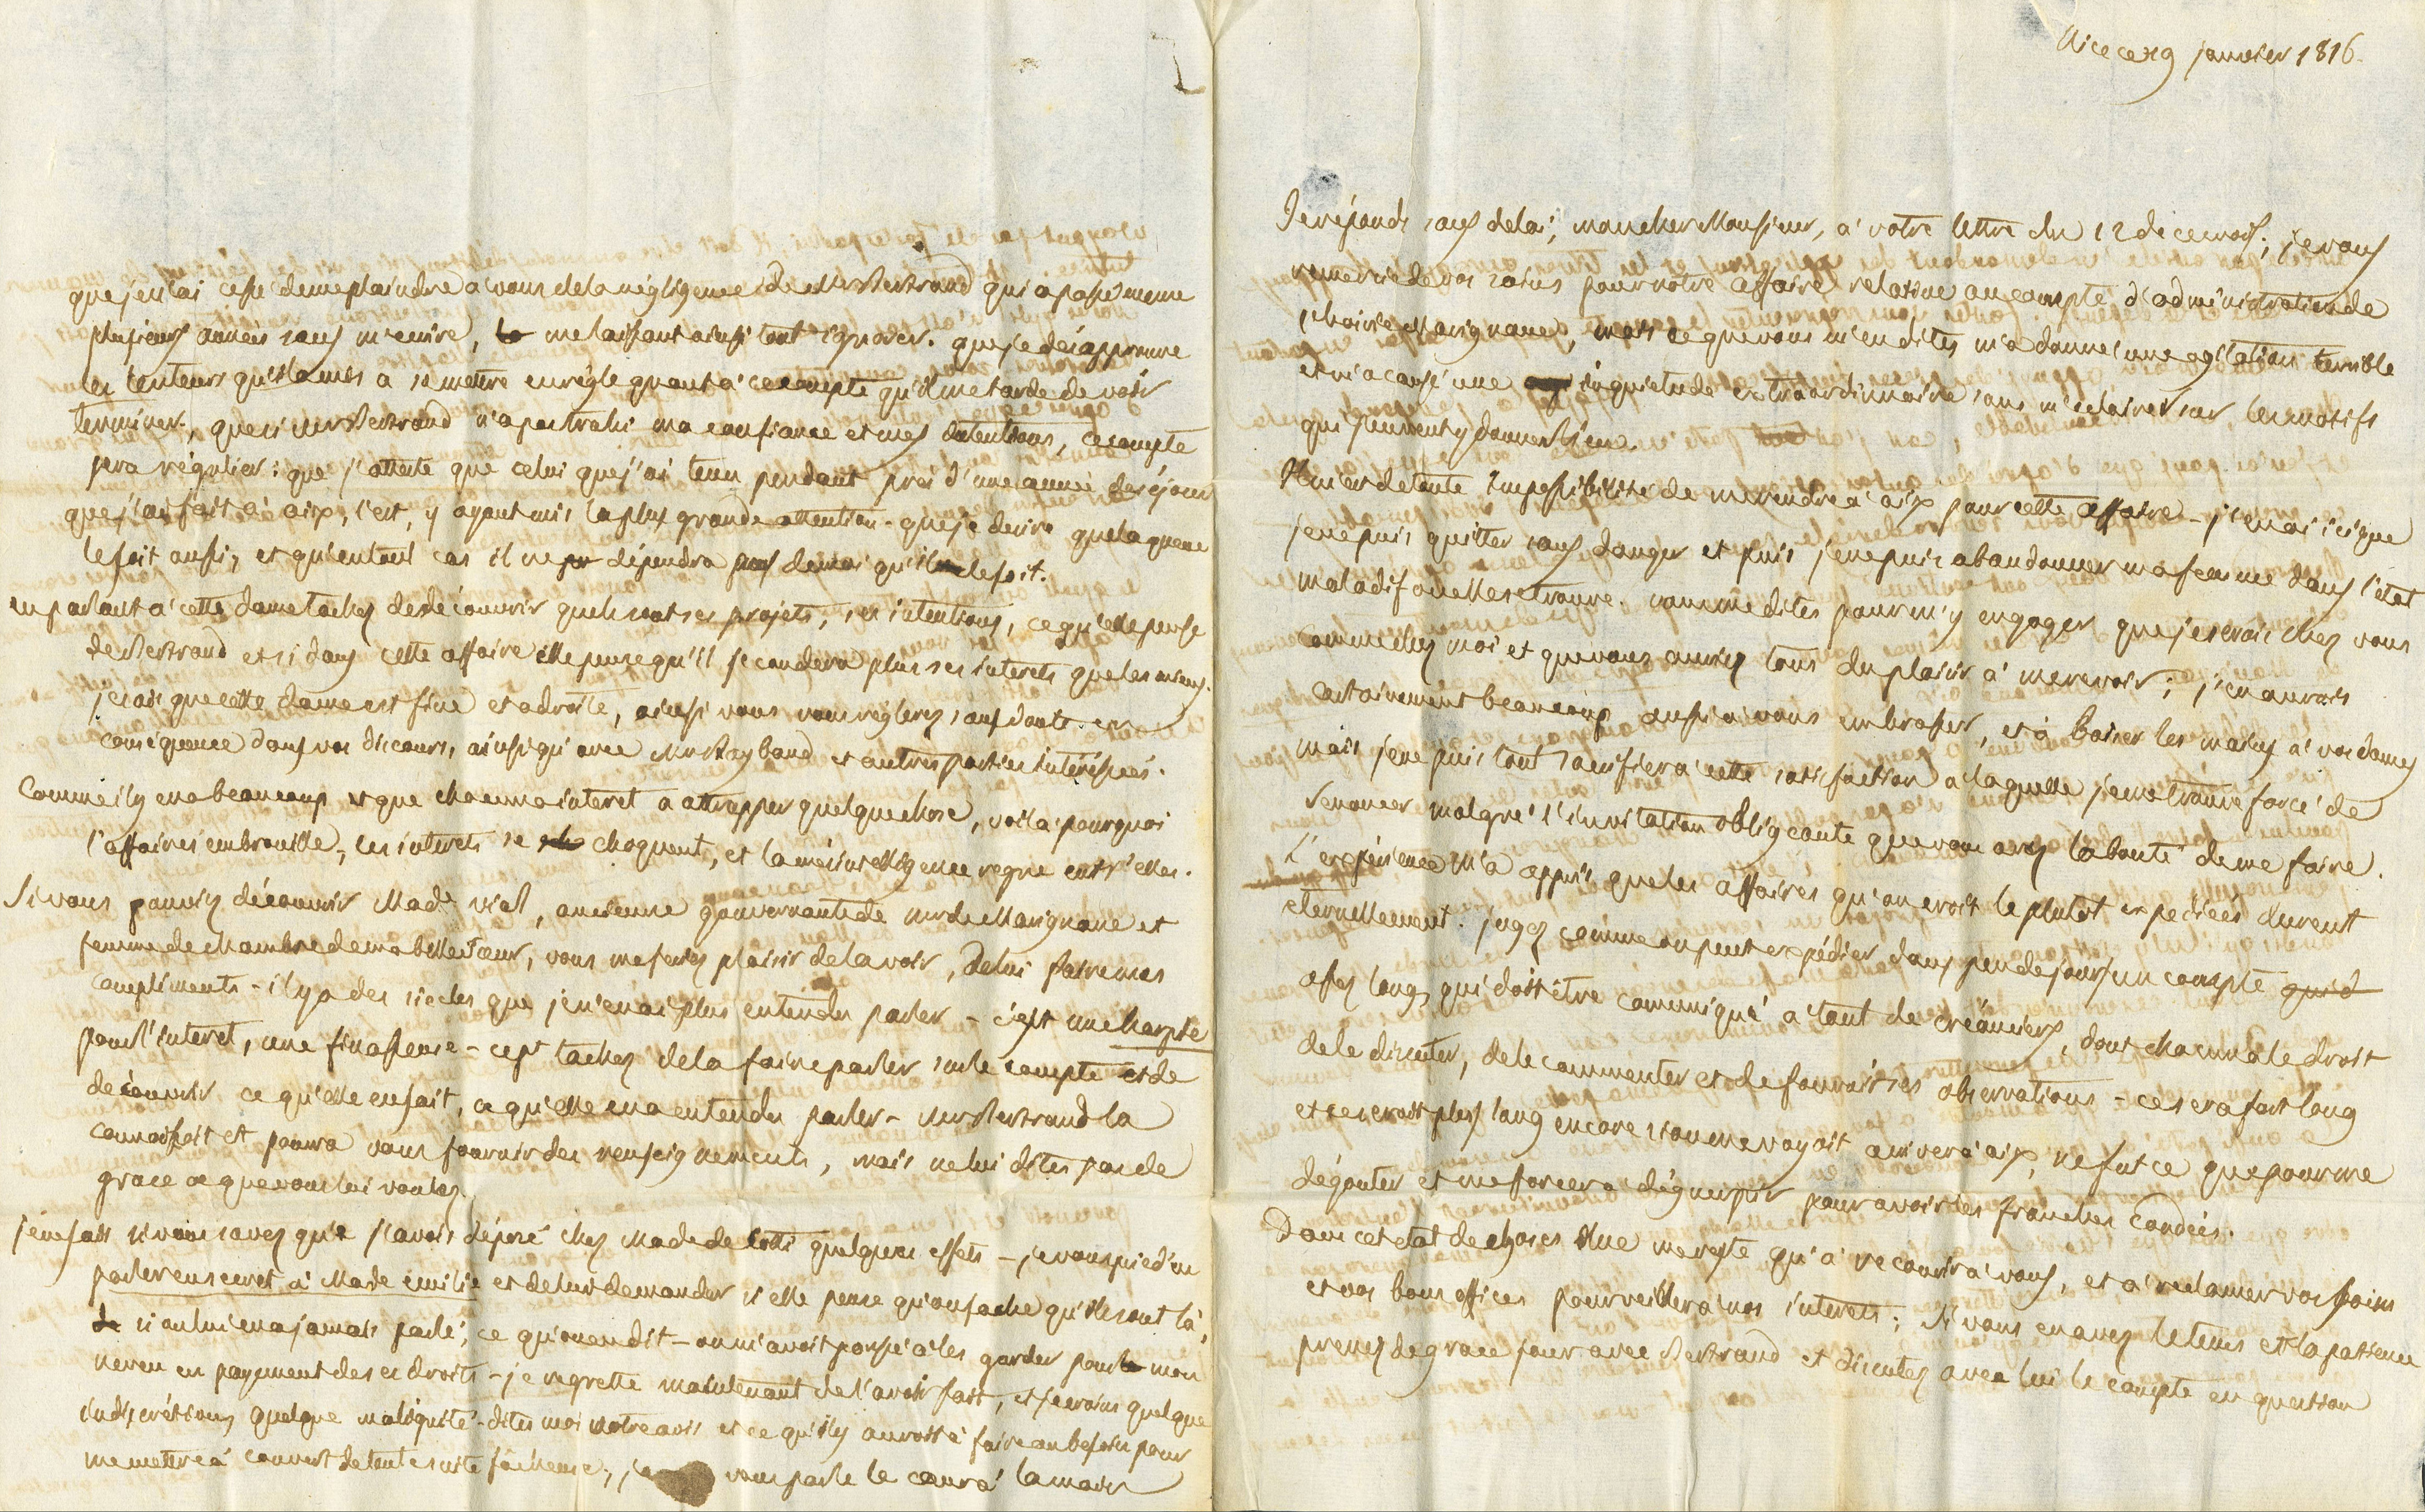 Nice ce 19 janvier 1816.
Je réponds sans delai, mon cher Monsieur, a' votre lettre du 12 de ce mois; je vous
remercie de vos soins pour notre affaire relative au compte d'administration de
l'hoirie Marignane, mais ce que vous m'en dites m'a donné une agitation terrible
et m'a causé une inquietude extraordinnaire sans m'eclairer sur les motifs
qui peuvent y donner lieu.
Il m'est de toute impossibilité de me rendre a' aix pour cette affaire - j'en ai ici que
je ne puis quitter sans danger et puis je ne puis abandonner ma femme dans l'état
maladif ou elle se trouve. vous me dites pour m'y engager que je serais chez vous
comme chez moi et que vous auriez tous du plaisir a' me revoir; j'en aurais
certainement beaucoup aussi a' vous embrasser, et à baiser les mains a' vos dames
mais je ne puis tout sacrifier a' cette satisfaction a laquelle je me trouve forcé de
renoncer malgré l'invitation obligeante que vous avez la bonté de me faire.
L'expérience m'a appris que les affaires qu'on croit le plutot expediées durent
eternellement. jugez comme on peut expédier dans peu de jours un compte qui d
assez long, qui doit être comuniqué a tant de créanciers, dont chacun a le droit
de le discuter, de le commenter et de fournir ses observations - ce sera fort long
et ce seroit plus long encore si on me voyoit arriver a' aix, ne fut ce que pour me
dégouter et me forcer a' déguerpir pour avoir les franches coudées.
Dans cet état de choses il ne me reste qu'a' recourir a' vous, et a' reclamer vos soins
et vos bons offices pour veiller a' nos interets; si vous en avez le tems et la patience
prenez de grace jour avec Bertrand et discutez avec lui le compte en question
que je n'ai cessé de me plaindre a' vous de la négligence de Mr Bertrand qui a passé meme
plusieurs années sans m'ecrire, me laissant ainsi tout ignorer. que je désapprouve
les lenteurs qu'il a mis a se mettre en règle quant a' ce compte qu'il me tarde de voir
terminer, que si Mr Bertrand n'a pas trahi ma confiance et mes intentions, ce compte
sera régulier: que j'atteste que celui que j'ai tenu pendant près d'une année de séjour
que j'ai fait a' aix, l'est, y ayant mis la plus grande attention - que je desire que la queue
le soit aussi, et qu'en tout cas il ne dépendra pas de moi qu'il le soit.
en parlant a' cette dame tachez de découvrir quels sont ses projets, ses intentions, ce qu'elle pense
de Bertrand et si dans cette affaire elle pense qu'il secondera plus ses interets que les miens.
je sais que cette dame est fine et adroite, ainsi vous vous reglerez sans doute en
conséquence dans vos discours, ainsi qu'avec Mr Raybaud et autres parties intéressées.
Comme il y en a beaucoup et que chacun a interet a attrapper quelque chose, voila' pourquoi
l'affaire s'embrouille, les interets se choquent, et la mésintelligence regne entr'elles.
Si vous pouviez découvrir Made vial, ancienne gouvernante de mr de Marignane et
femme de chambre de ma belle soeur, vous me feriez plaisir de la voir, de lui faire mes
compliments - il y a des siecles que je n'en ai plus entendu parler - c'est une harpie
pour l'interet, une finasseuse - cept tachez de la faire parler sur le compte et de
découvrir ce qu'elle en sait, ce qu'elle en a entendu parler - Mr Bertrand la
connaissoit et pourra vous fournir des renseignements, mais ne lui dites pas de
grace ce que vous lui voulez.
je ne sais si vous savez que j'avois déposé chez Made de Cotti quelques effets - je vous prie d'en
parler en secret a' Made emilie et de lui demander si elle pense qu'on sache qu'ils sont là,
si on lui en a jamais parlé, ce qu'on en dit - on m'avoit poussé a' les garder pour mon
neveu en payement de ses droits - je regrette maintenant de l'avoir fait, et je crains quelque
indiscrétion, quelque malignité - dites moi votre avis et ce qu'il y auroit a' faire au besoin pour
me mettre a' couvert de toute suite fâcheuse, je vous parle le coeur a' la main